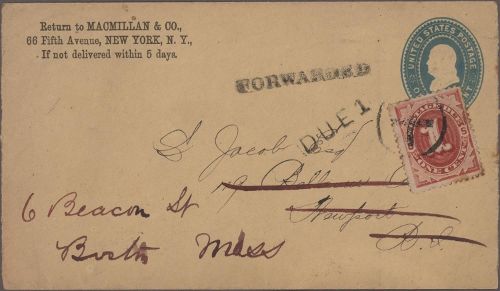 Return to MACMILLAN & CO.,
66 Fifth Avenue, NEW YORK, N. Y.,
If not delivered within 5 days.
UNITED STATES POSTAGE
FORWARDED
DUE 1
ONE CENT
S Jacob Esq
19 Bellevue
Newport
R.I.
6 Beacon St
Boston Mass